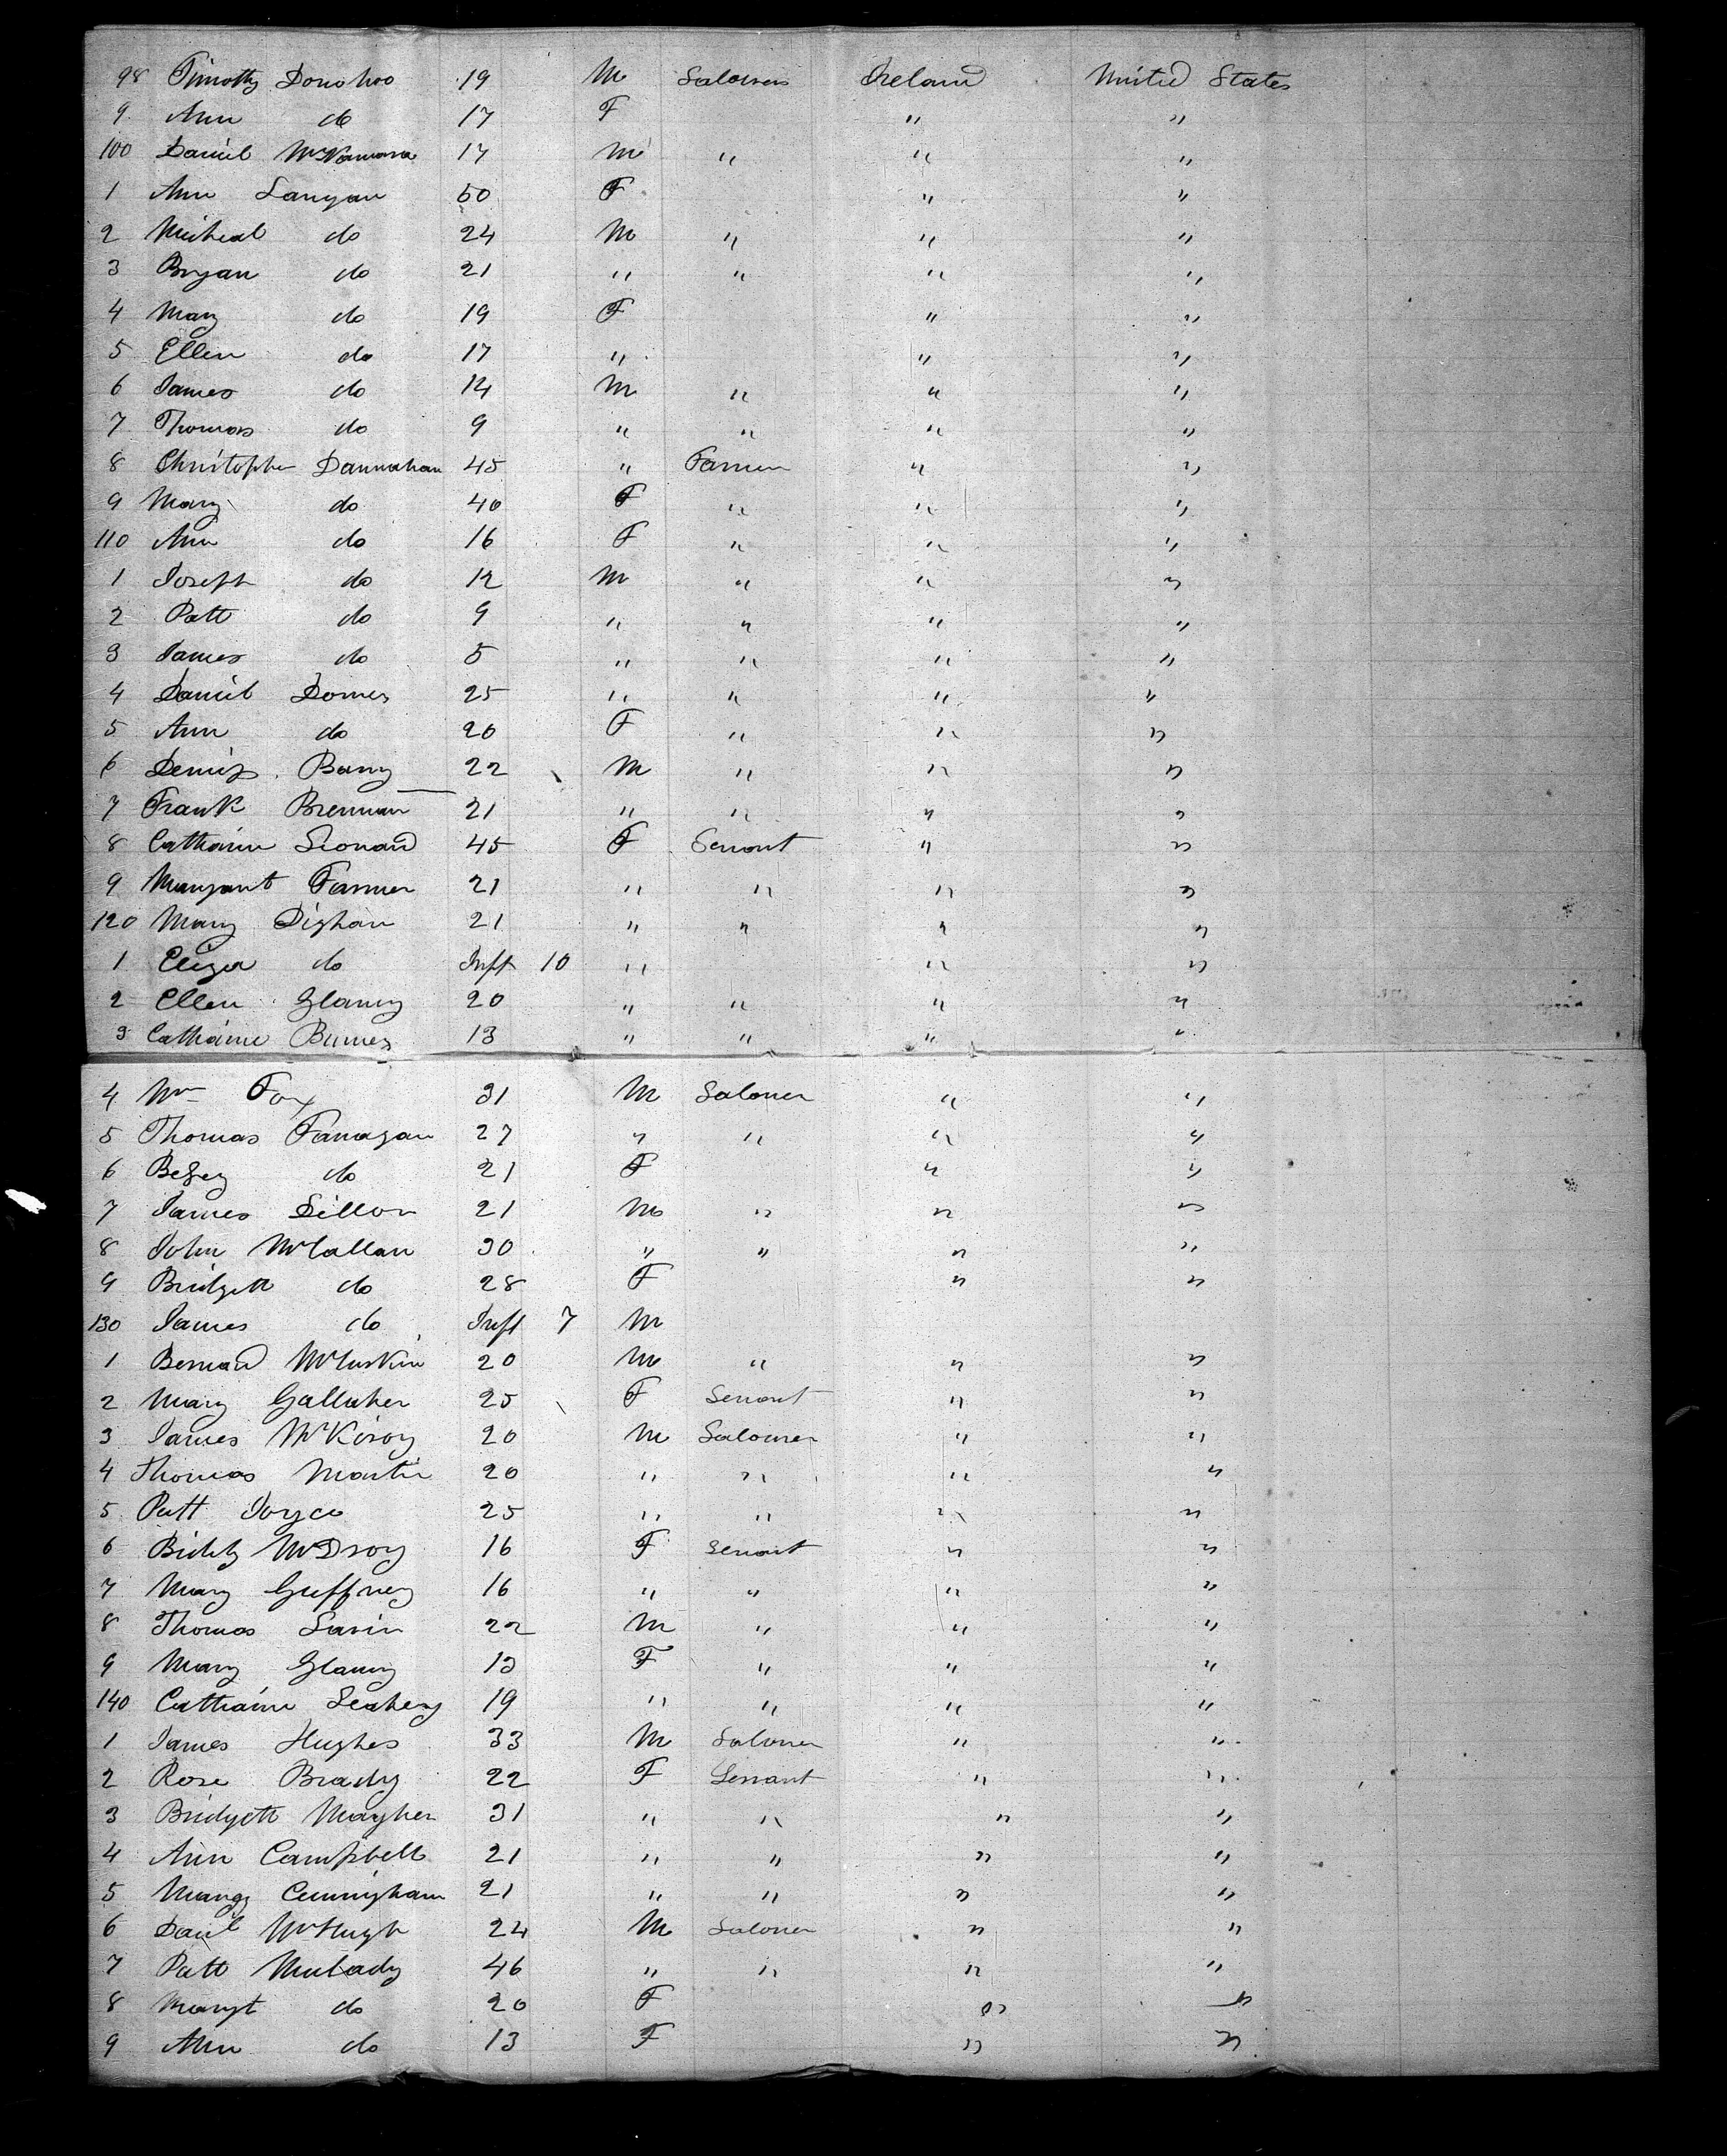 98 Timothy Donohoo 19 M Labourer Ireland United States
9 Ann do 17 F " "
100 Daniel McNamara 17 M " " "
1 Ann Langan 50 F " "
2 Micheal do 24 M " " "
3 Bryan do 21 " " " "
4 Mary do 19 F " "
5 Ellen do 17 " " "
6 James do 14 M " " "
7 Thomas do 9 " " " "
8 Christopher Dannahan 45 " Farmer " "
9 Mary do 40 F " " "
110 Ann do 16 F " " "
1 Joseph do 12 M " " "
2 Patt do 9 " " " "
3 James do 5 " " " "
4 Daniel 25 " " " "
5 Ann do 20 F " " "
6 Dennis Barry 22 M " " "
7 Frank Brennan 21 " " " "
8 Catharine Leonard 45 F Servant " "
9 Margaret Farmer 21 " " " "
120 Mary Dighan 21 " " " "
1 Eliza do Inft 10 " " "
2 Ellen Glancy 20 " " " "
3 Catharine Burnes 13 " " " "
4 Wm Fox 31 M Labourer " "
5 Thomas Fanagan 27 " " " "
6 Betsey do 21 F " "
7 James Dillon 21 M " " "
8 John McCallan 30 " " " "
9 Bridgett do 28 F " "
130 James do Inft 7 M
1 Bernard McCuskin 20 M " " "
2 Mary Gallaher 25 F Servant " "
3 James 20 M Labourer " "
4 Thomas Martin 20 " " " "
5 Patt Joyce 25 " " " "
6 Biddy 16 F Servant " "
7 Mary Guffney 16 " " " "
8 Thomas Lavin 22 M " " "
9 Mary Glancy 13 F " " "
140 Catharine Leahey 19 " " " "
1 James Hughes 33 M Labourer " "
2 Rose Brady 22 F Servant " "
3 Bridgett Magher 31 " " " "
4 Ann Campbell 21 " " " "
5 Cunningham 21 " " " "
6 Danl McHugh 24 M Labourer " "
7 Patt Mulady 46 " " " "
8 Margt do 20 F " "
9 Ann do 13 F " "